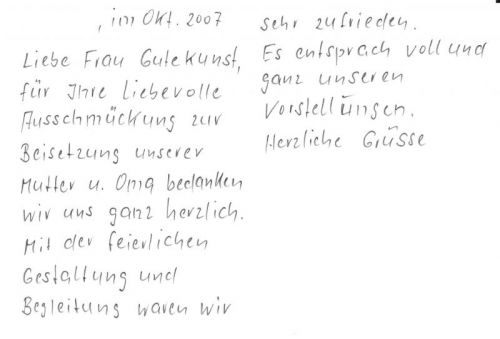 , im Okt. 2007
Liebe Frau Gutekunst,
für Ihre liebevolle
Ausschmückung zur
Beisetzung unserer
Mutter u. Oma bedanken
wir uns ganz herzlich.
Mit der feierlichen
Gestaltung und
Begleitung waren wir
sehr zufrieden.
Es entsprach voll und
ganz unseren
Vorstellungen.
Herzliche Grüsse